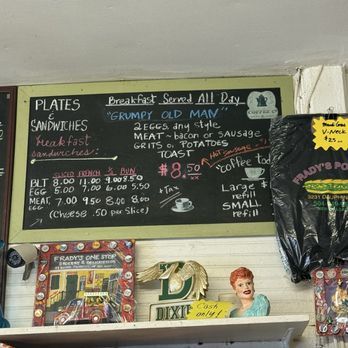 PLATES
&
SANDWICHES
breakfast
sandwiches:
SLICED FRENCH ½ BUN
BLT 8.00 11.00 9.00 8.50
EGG 5.00 7.00 6.00 5.50
MEAT, 7.00 9.50 8.00 8.00
EGG
(Cheese .50 per slice)
Breakfast Served All Day
"GRUMPY OLD MAN"
2 EGGS any style
MEAT ~ bacon or SAUSAGE
GRITS or POTATOES
TOAST
$8.50
+TAX
Hot sausage
"coffee too"
Large
refill
SMALL
refill
COFFEE CO
V-NECK
$25
FRADY'S PO
3231 DAUPHIN
FRADY'S ONE STOP
DIXI
Cash
only!